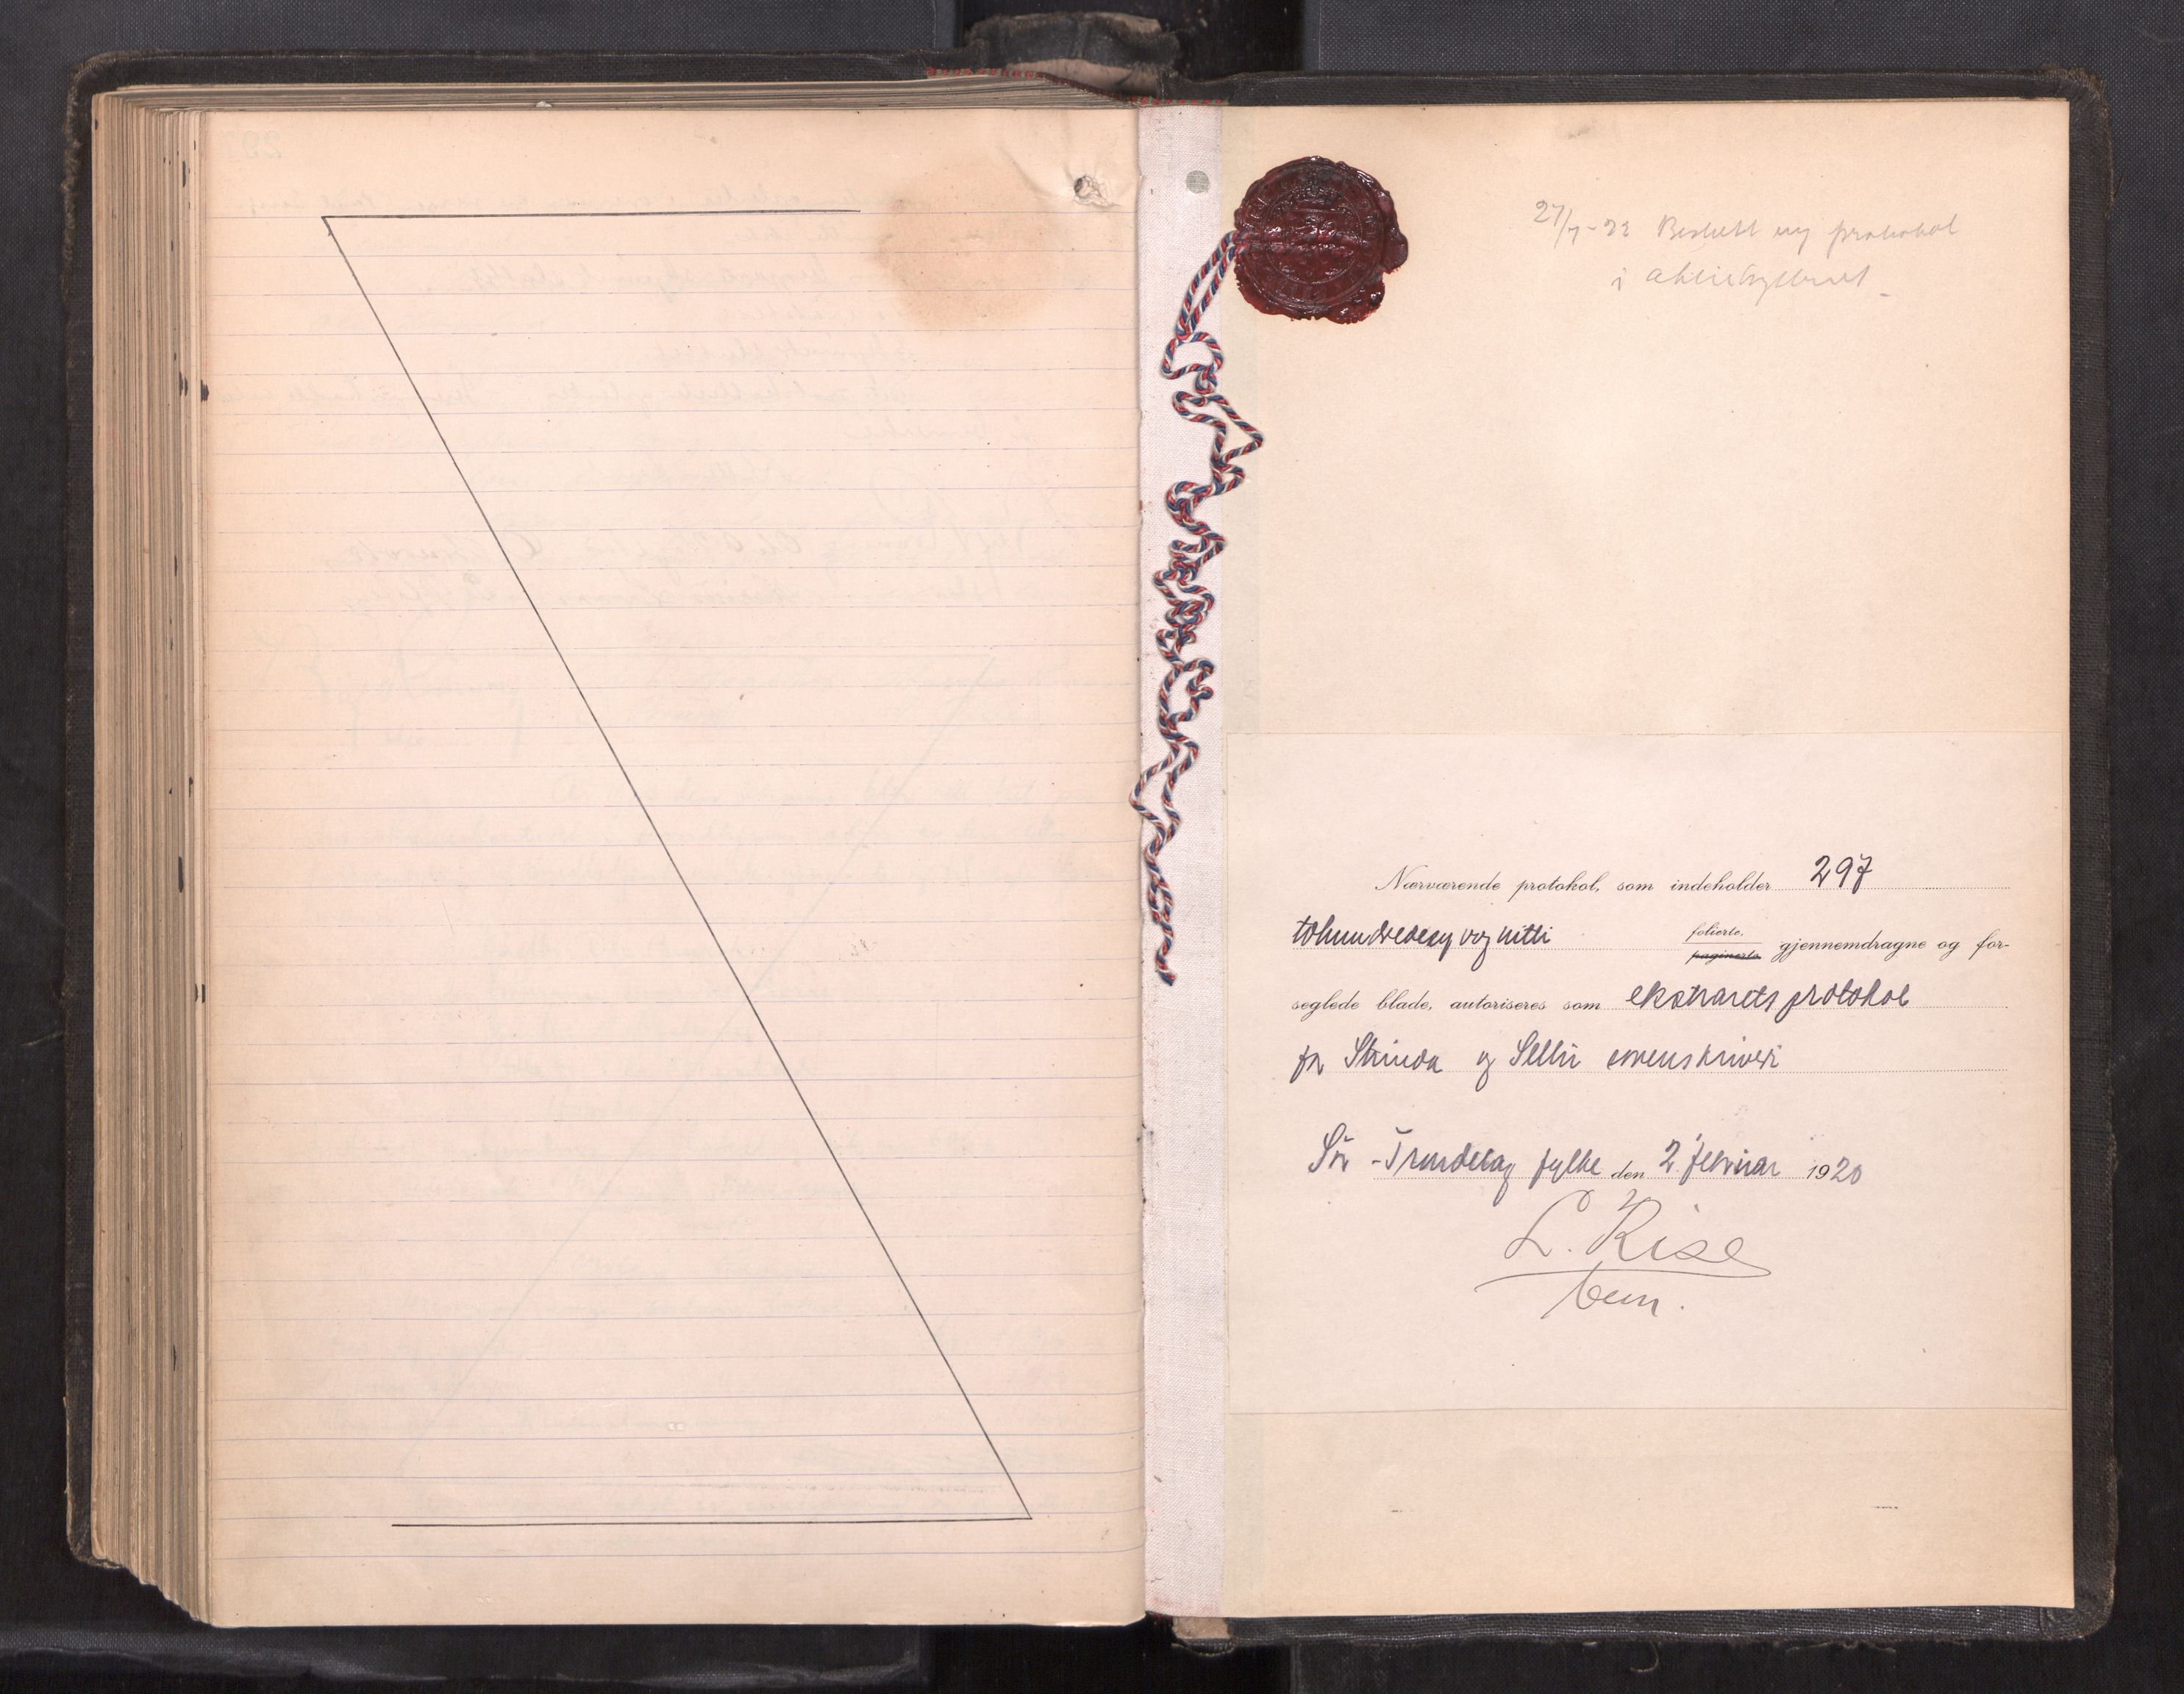 27/7-22 Beslutt ny protokol
i
Nærværende protokol, som indeholder 297
tohundredesyvognitti folierte, paginerte gjennemdragne og for-
seglede blade, autoriseres som ekstraretsprotokol
for Strinda og Selbu sorenskriveri
Sør-Trøndelag fylke den 2 februar 1920
L. Rise
bem.